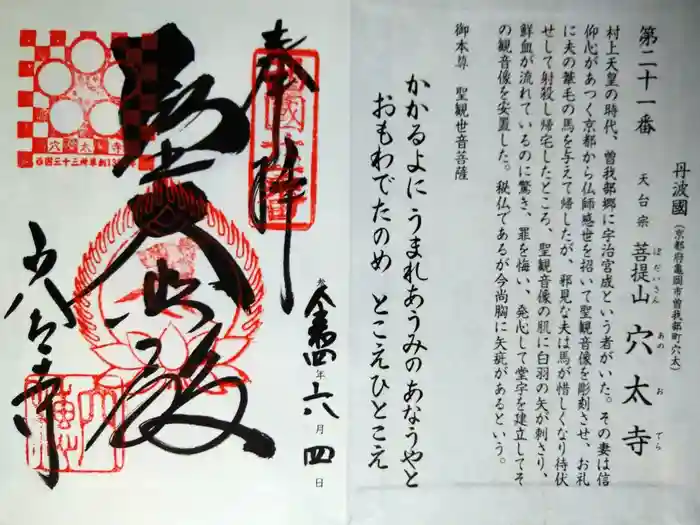 丹波國(京都府亀岡市曽我部町穴太)
第二十一番 天台宗 菩提山 穴太寺
ぼだいさん あのおでら
村上天皇の時代、曽我部郷に宇治宮成という者がいた。その妻は信
仰心があつく京都から仏師感世を招いて聖観音像を彫刻させ、お礼
に夫の葦毛の馬を与えて帰したが、邪見な夫は馬が惜しくなり待伏
せして射殺し帰宅したところ、聖観音像の肌に白羽の矢が刺さり、
鮮血が流れているのに驚き、罪を悔い、発心して堂宇を建立してそ
の観音像を安置した。秘仏であるが今尚胸に矢疵があるという。
御本尊 聖観世音菩薩
かかるよに うまれあうみの あなうやと
おもわでたのめ とこえひとこえ
奉拝
聖大悲殿
穴太寺
年六月四日
穴太寺
西国三十三所草創1300年